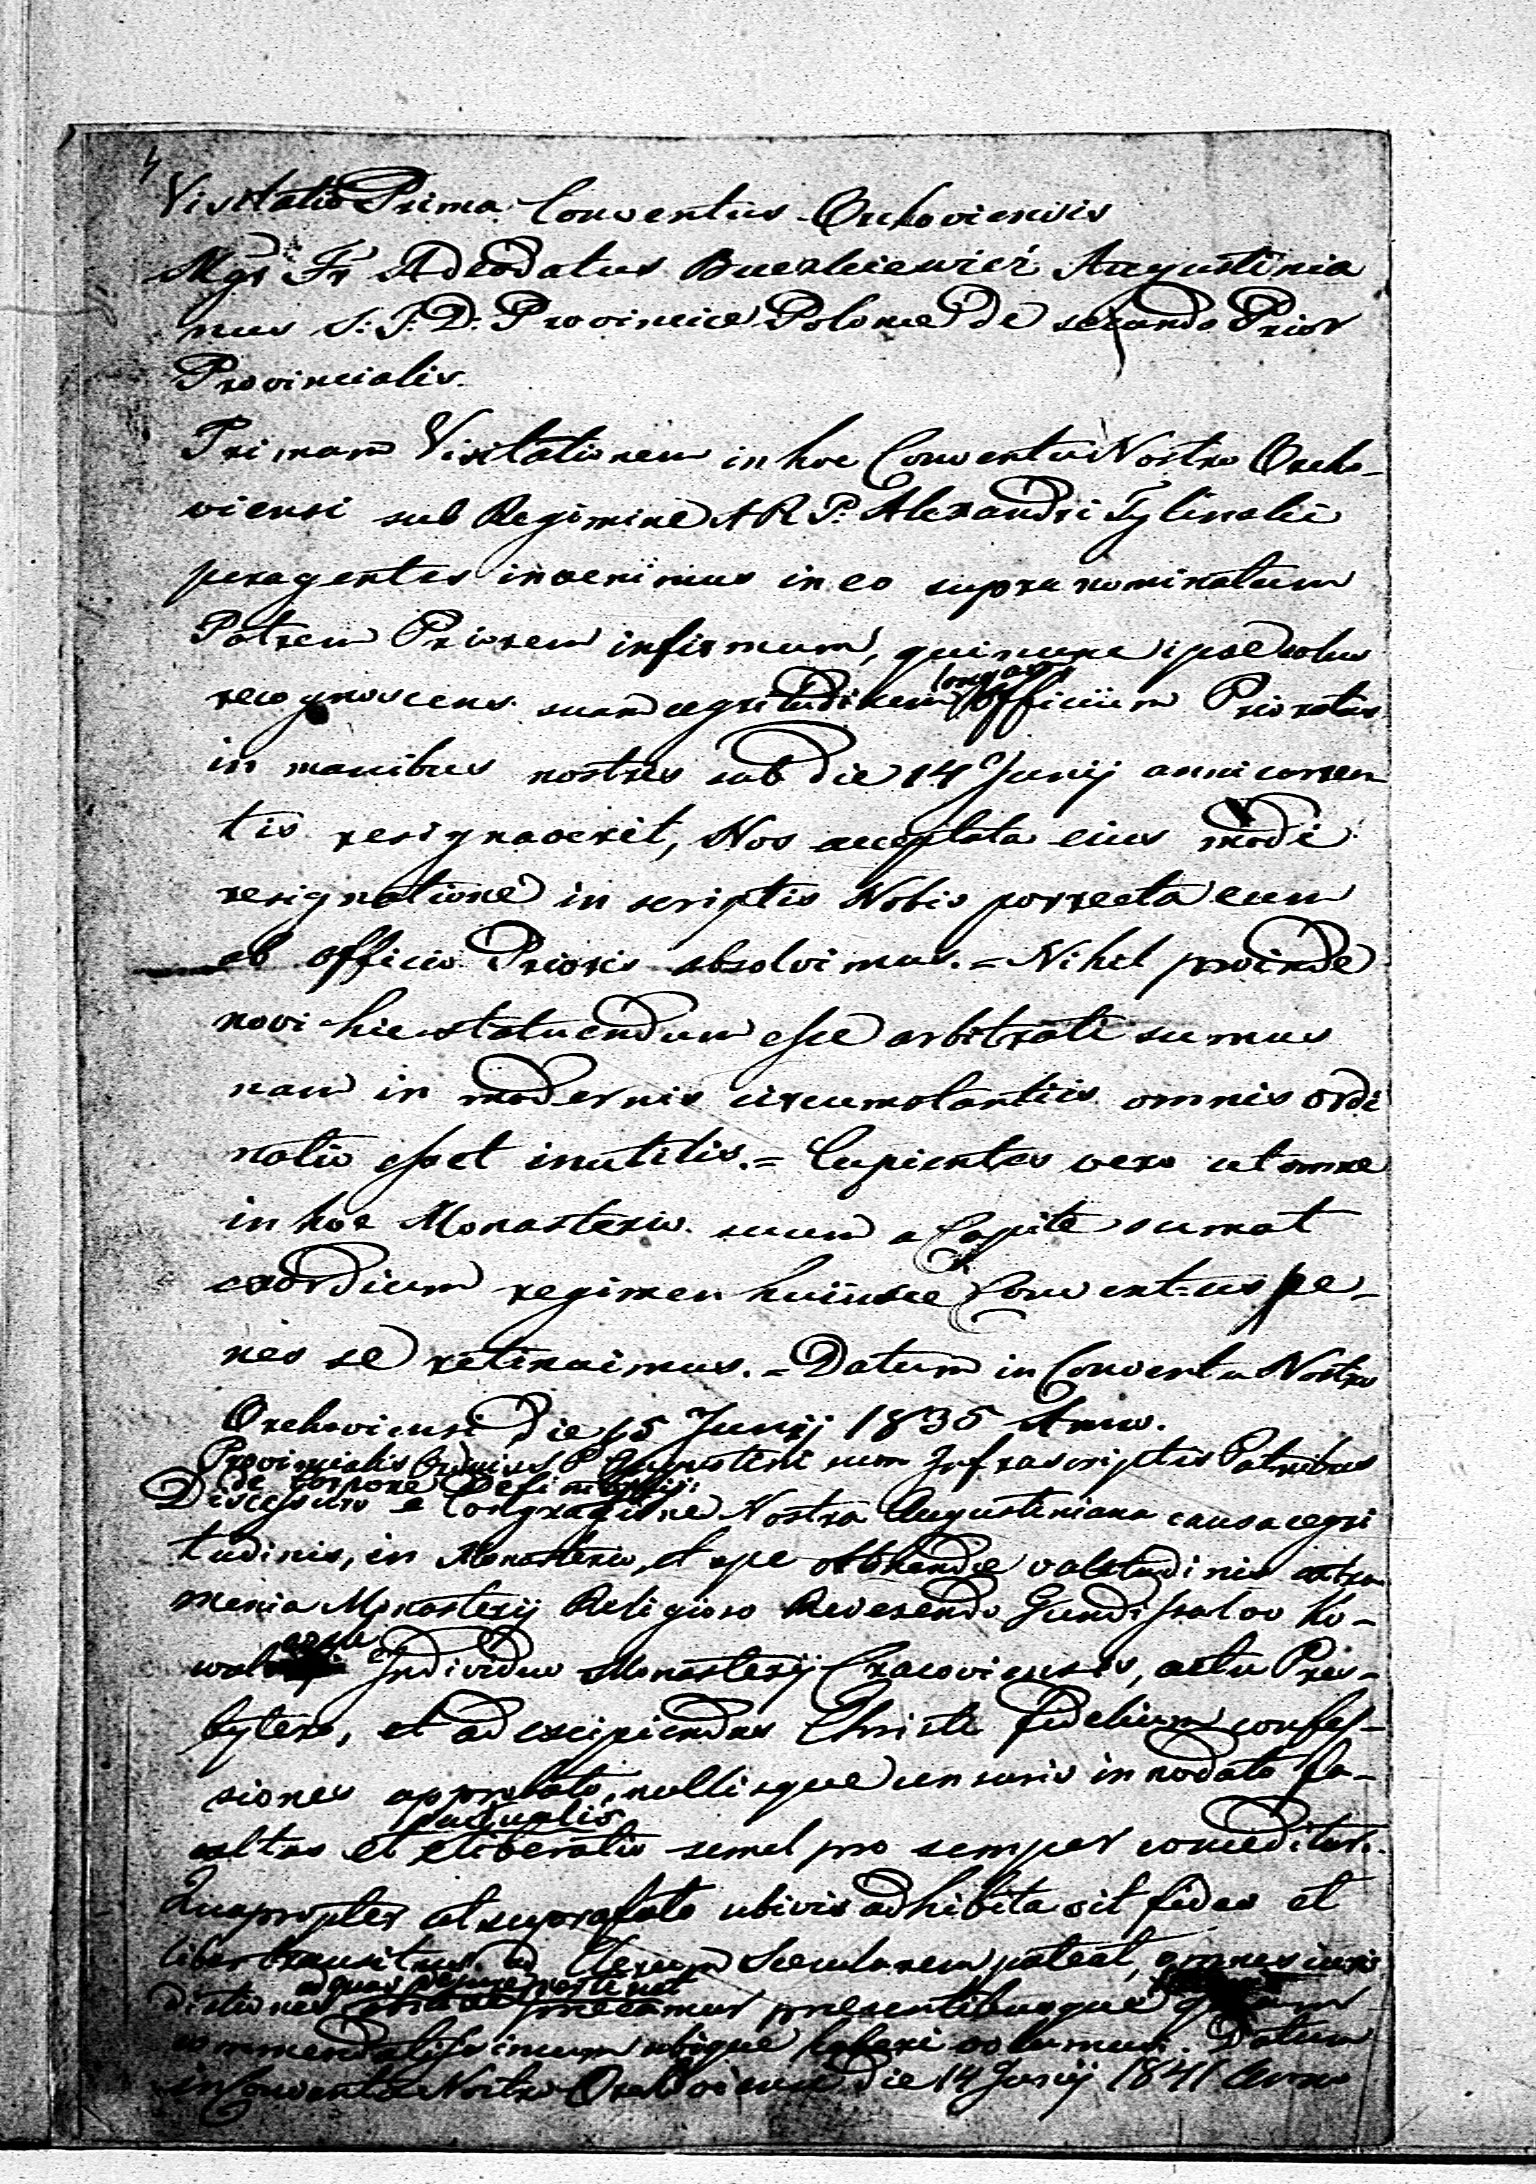 Visitatio Prima Conventus Orchoviensis
Mgr Fr Adeodatus Augustinia
nus S: T: D: Provinciæ Polonæ de secundo Prior
Provincialis.
Primam Visitationem in hoc Conventu Nostro Orcho-
viensi sub Regimine A R P: Alexandri Tylinskii
peragentes invenimus in eo supra nominatum
Patrem Priorem infirmum, qui nunc ipse solus
recognoscens suam ægritudinem longam Officium Prioratus
in manibus nostris sub die 14 Junij anni curren-
tis resignaverit, Nos acceptata eius modi
resignatione in scriptis Nobis porrecta eum
ab officio Prioris absolvimus. = Nihil proinde
novi hic statuendum esse arbitrati sumus
nam in modernis circumstantiis omnis ordi
natio esset inutilis. = Cupientes vero ut omne
in hoc Monasterio suum a Capite sumat
exordium regimen huiusce Conventus pe-
nes se retinuimus. = Datum in Conventu Nostro
Orchoviensi die 15 Junij 1835 Anno.
Provincialis Ordinis S P Augustini cum Infrascriptis Patribus
de Corpore Definitorij:
Discessuro e Congregatione Nostra Augustiniana causa ægri
tudinis, in Monasterio, et spe obtinendæ valetudinis extra
menia Monasterij Religioso Reverendo Gundisalvo Ko-
wal Individuo Monasterij Cracoviensis, actu Pres-
bytero, et ad excipiendas Christi fidelium confes-
siones approbato, nullisque censuris innodato fa-
cultas et actualis liberatio semel pro semper conceditur.
Quapropter ut suprafato ubivis adhibita sit fides et
liber transitus ad Clerum Secularem pateat, omnes iuris
dictiones ad quas de jure pertinet precamur presentibusque
commendatissimum ubique haberi volumus. Datum
in Conventu Nostro Orchoviensi die 14 Junij 1841 Anno